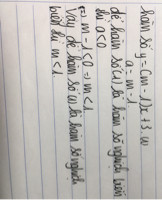 hàm số y = (m - 1)x + 3. (1)
a = m - 1
để hàm số (1) là hàm số nghịch biến
khi a < 0
(=) m - 1 < 0 => m < 1.
Vậy để hàm số (1) là hàm số nghịch
biến khi m < 1